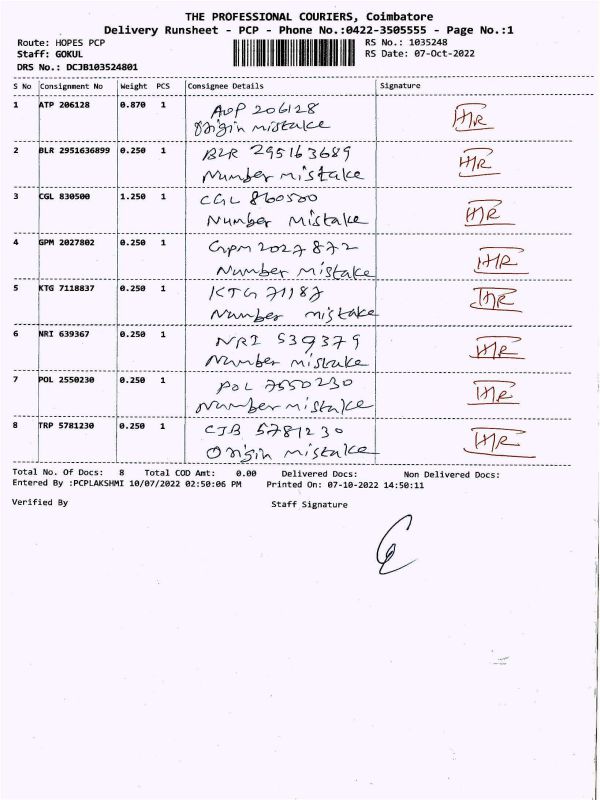 THE PROFESSIONAL COURIERS, Coimbatore
Delivery Runsheet - PCP - Phone No.:0422-3505555 - Page No.:1
Route: HOPES PCP RS No.: 1035248
Staff: GOKUL RS Date: 07-Oct-2022
DRS No.: DCJB103524801
S No Consignment No Weight PCS Consignee Details Signature
1 ATP 206128 0.870 1 AOP 206128
Origin mistake
2 BLR 2951636899 0.250 1 BLR 295163689
Number mistake
3 CGL 830500 1.250 1 CGL 860500
Number mistake
4 GPM 2027802 0.250 1 GPM 2027872
Number mistake
5 KTG 7118837 0.250 1 KTG 71187
Number mistake
6 NRI 639367 0.250 1 NRI 539379
Number mistake
7 POL 2550230 0.250 1 POL 7550230
Number mistake
8 TRP 5781230 0.250 1 CJB 5781230
Origin mistake
Total No. Of Docs: 8 Total COD Amt: 0.00 Delivered Docs: Non Delivered Docs:
Entered By :PCPLAKSHMI 10/07/2022 02:50:06 PM Printed On: 07-10-2022 14:50:11
Verified By Staff Signature